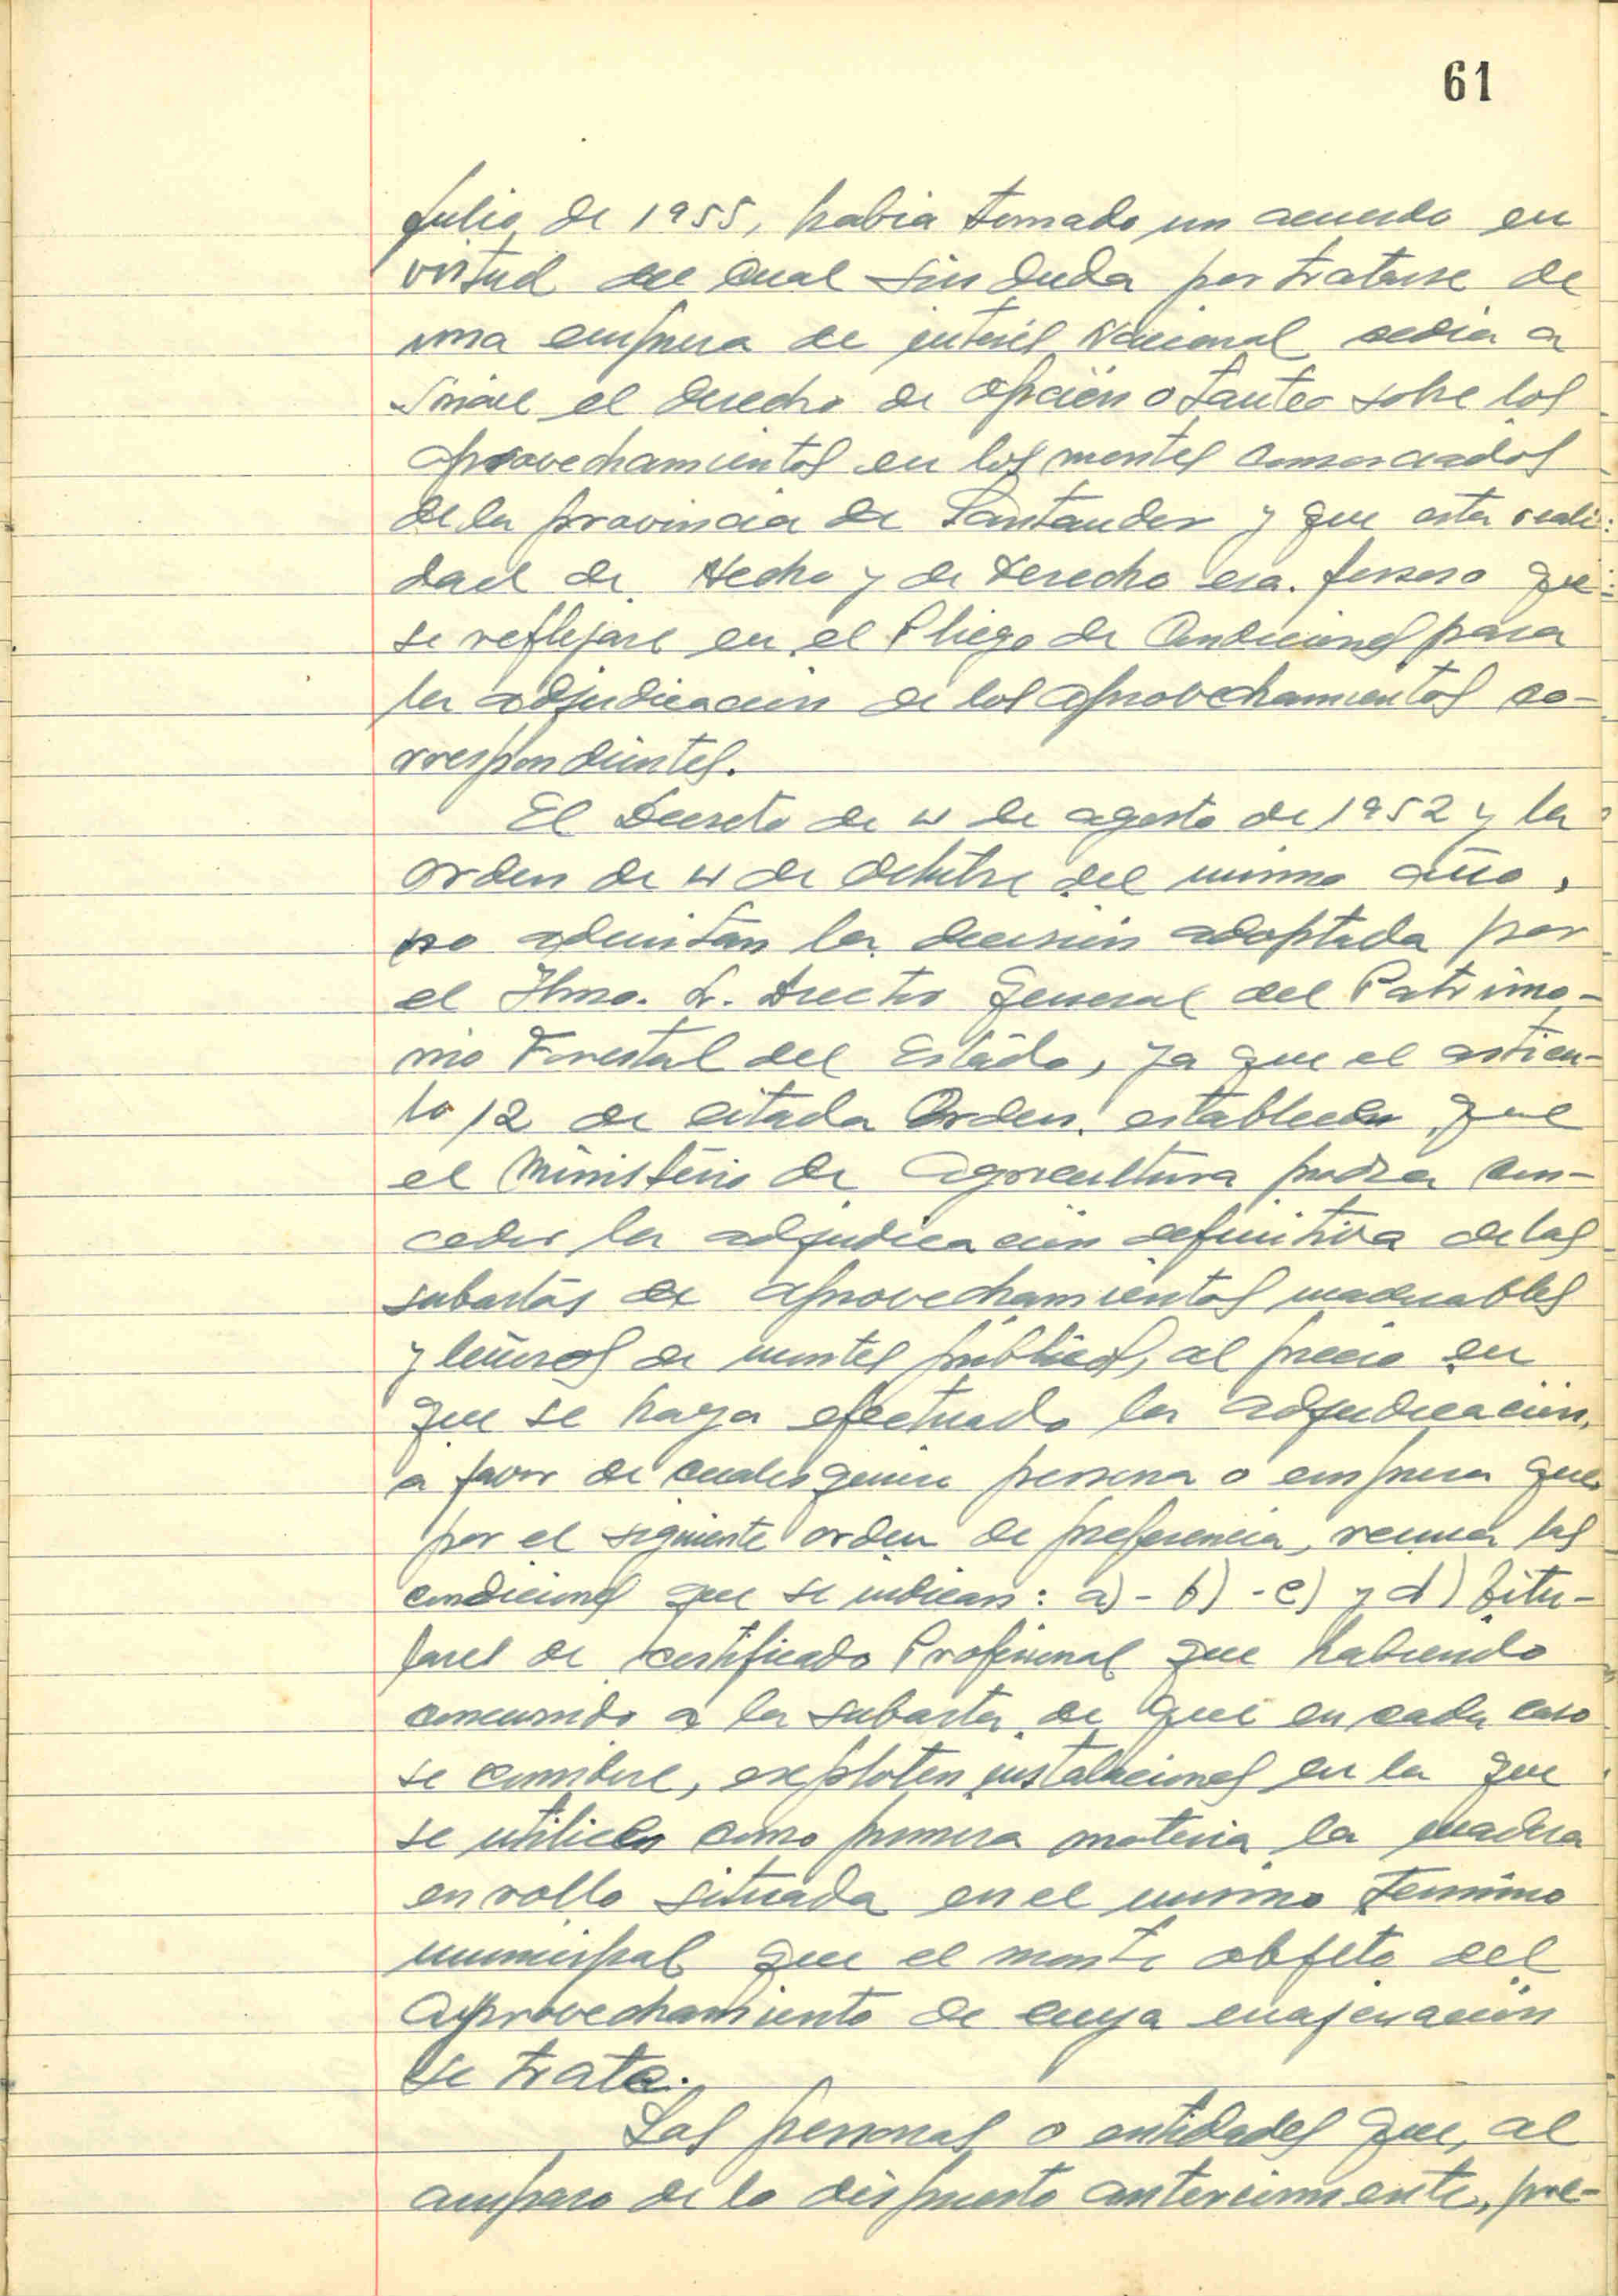 61
Julio de 1955, habia tomado un acuerdo en
virtud del cual sin duda por tratarse de
una empresa de interés Nacional cedia a
Sniace el derecho de opción o tanteo sobre los
aprovechamientos en los montes consorciados
de la provincia de Santander y que esta reali-
dad de Hecho y de Derecho era forzoso que
se reflejase en el Pliego de Condiciones para
la adjudicacion de los aprovechamientos co-
rrespondientes.
El Decreto de 4 de agosto de 1952 y la
orden de 4 de Octubre del mismo año,
no admitan la decisión adoptada por
el Ilmo. Sr. Director General del Patrimo-
nio Forestal del Estado, ya que el articu-
lo 12 de citada Orden establece que
el Ministerio de Agricultura podra con-
ceder la adjudicación definitiva de las
subastas de aprovechamientos maderables
y leñosos de montes públicos, al precio en
que se haya efectuado la adjudicación,
a favor de cualesquiera persona o empresa que
por el siguiente orden de preferencia, reuna las
condiciones que se indican: a) - b) - c) y d) titu-
lares de certificado Profesional que habiendo
concurrido a la subasta de que en cada caso
se considere, exploten instalaciones en la que
se utilice como primera materia la madera
en rollo situada en el mismo Termino
municipal que el monte objeto del
Aprovechamiento de cuya enajenación
se trate.
Las personas o entidades que, al
amparo de lo dispuesto anteriormente, pre-